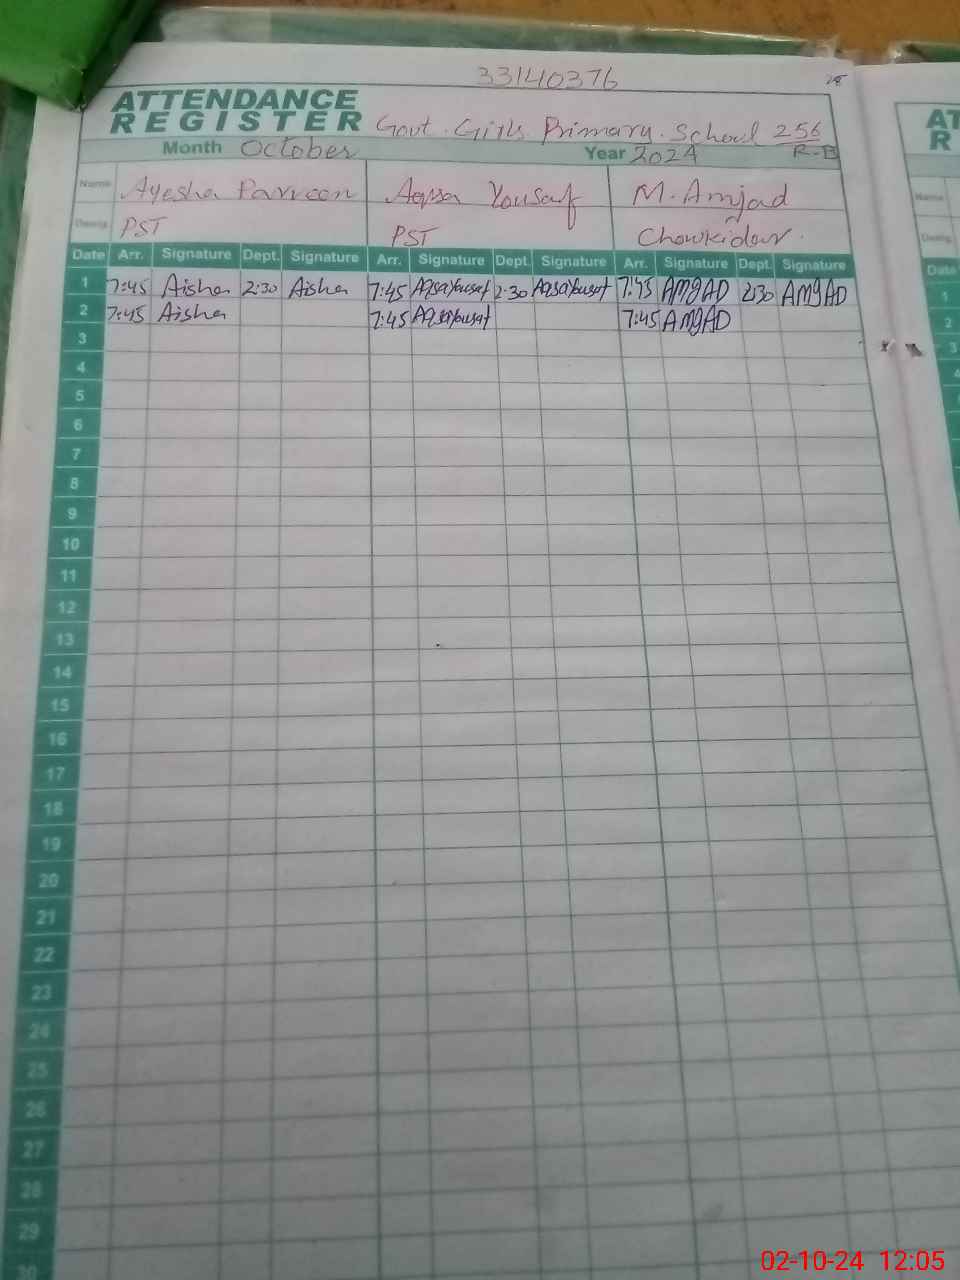 33140376
ATTENDANCE
REGISTER Govt. Girls Primary School 256
Month October Year 2024 R-B
Name Ayesha Parveen Aqsa Yousaf M. Amjad
Desig. PST PST Chowkidar.
Date Arr. Signature Dept. Signature Arr. Signature Dept. Signature Arr. Signature Dept. Signature
1 7:45 Aisha 2:30 Aisha 7:45 Aqsa Yousaf 2:30 Aqsa Yousaf 7:45 AMJAD 2:30 AMJAD
2 7:45 Aisha 7:45 Aqsa Yousaf 7:45 AMJAD
3
4
5
6
7
8
9
10
11
12
13
14
15
16
17
18
19
20
21
22
23
24
25
26
27
28
29
30
AT
R
Name
Desig.
Date
1
2
3
4
02-10-24 12:05